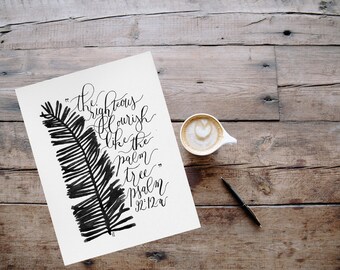 "the
righteous
flourish
like the
palm
tree"
psalm
92:12a